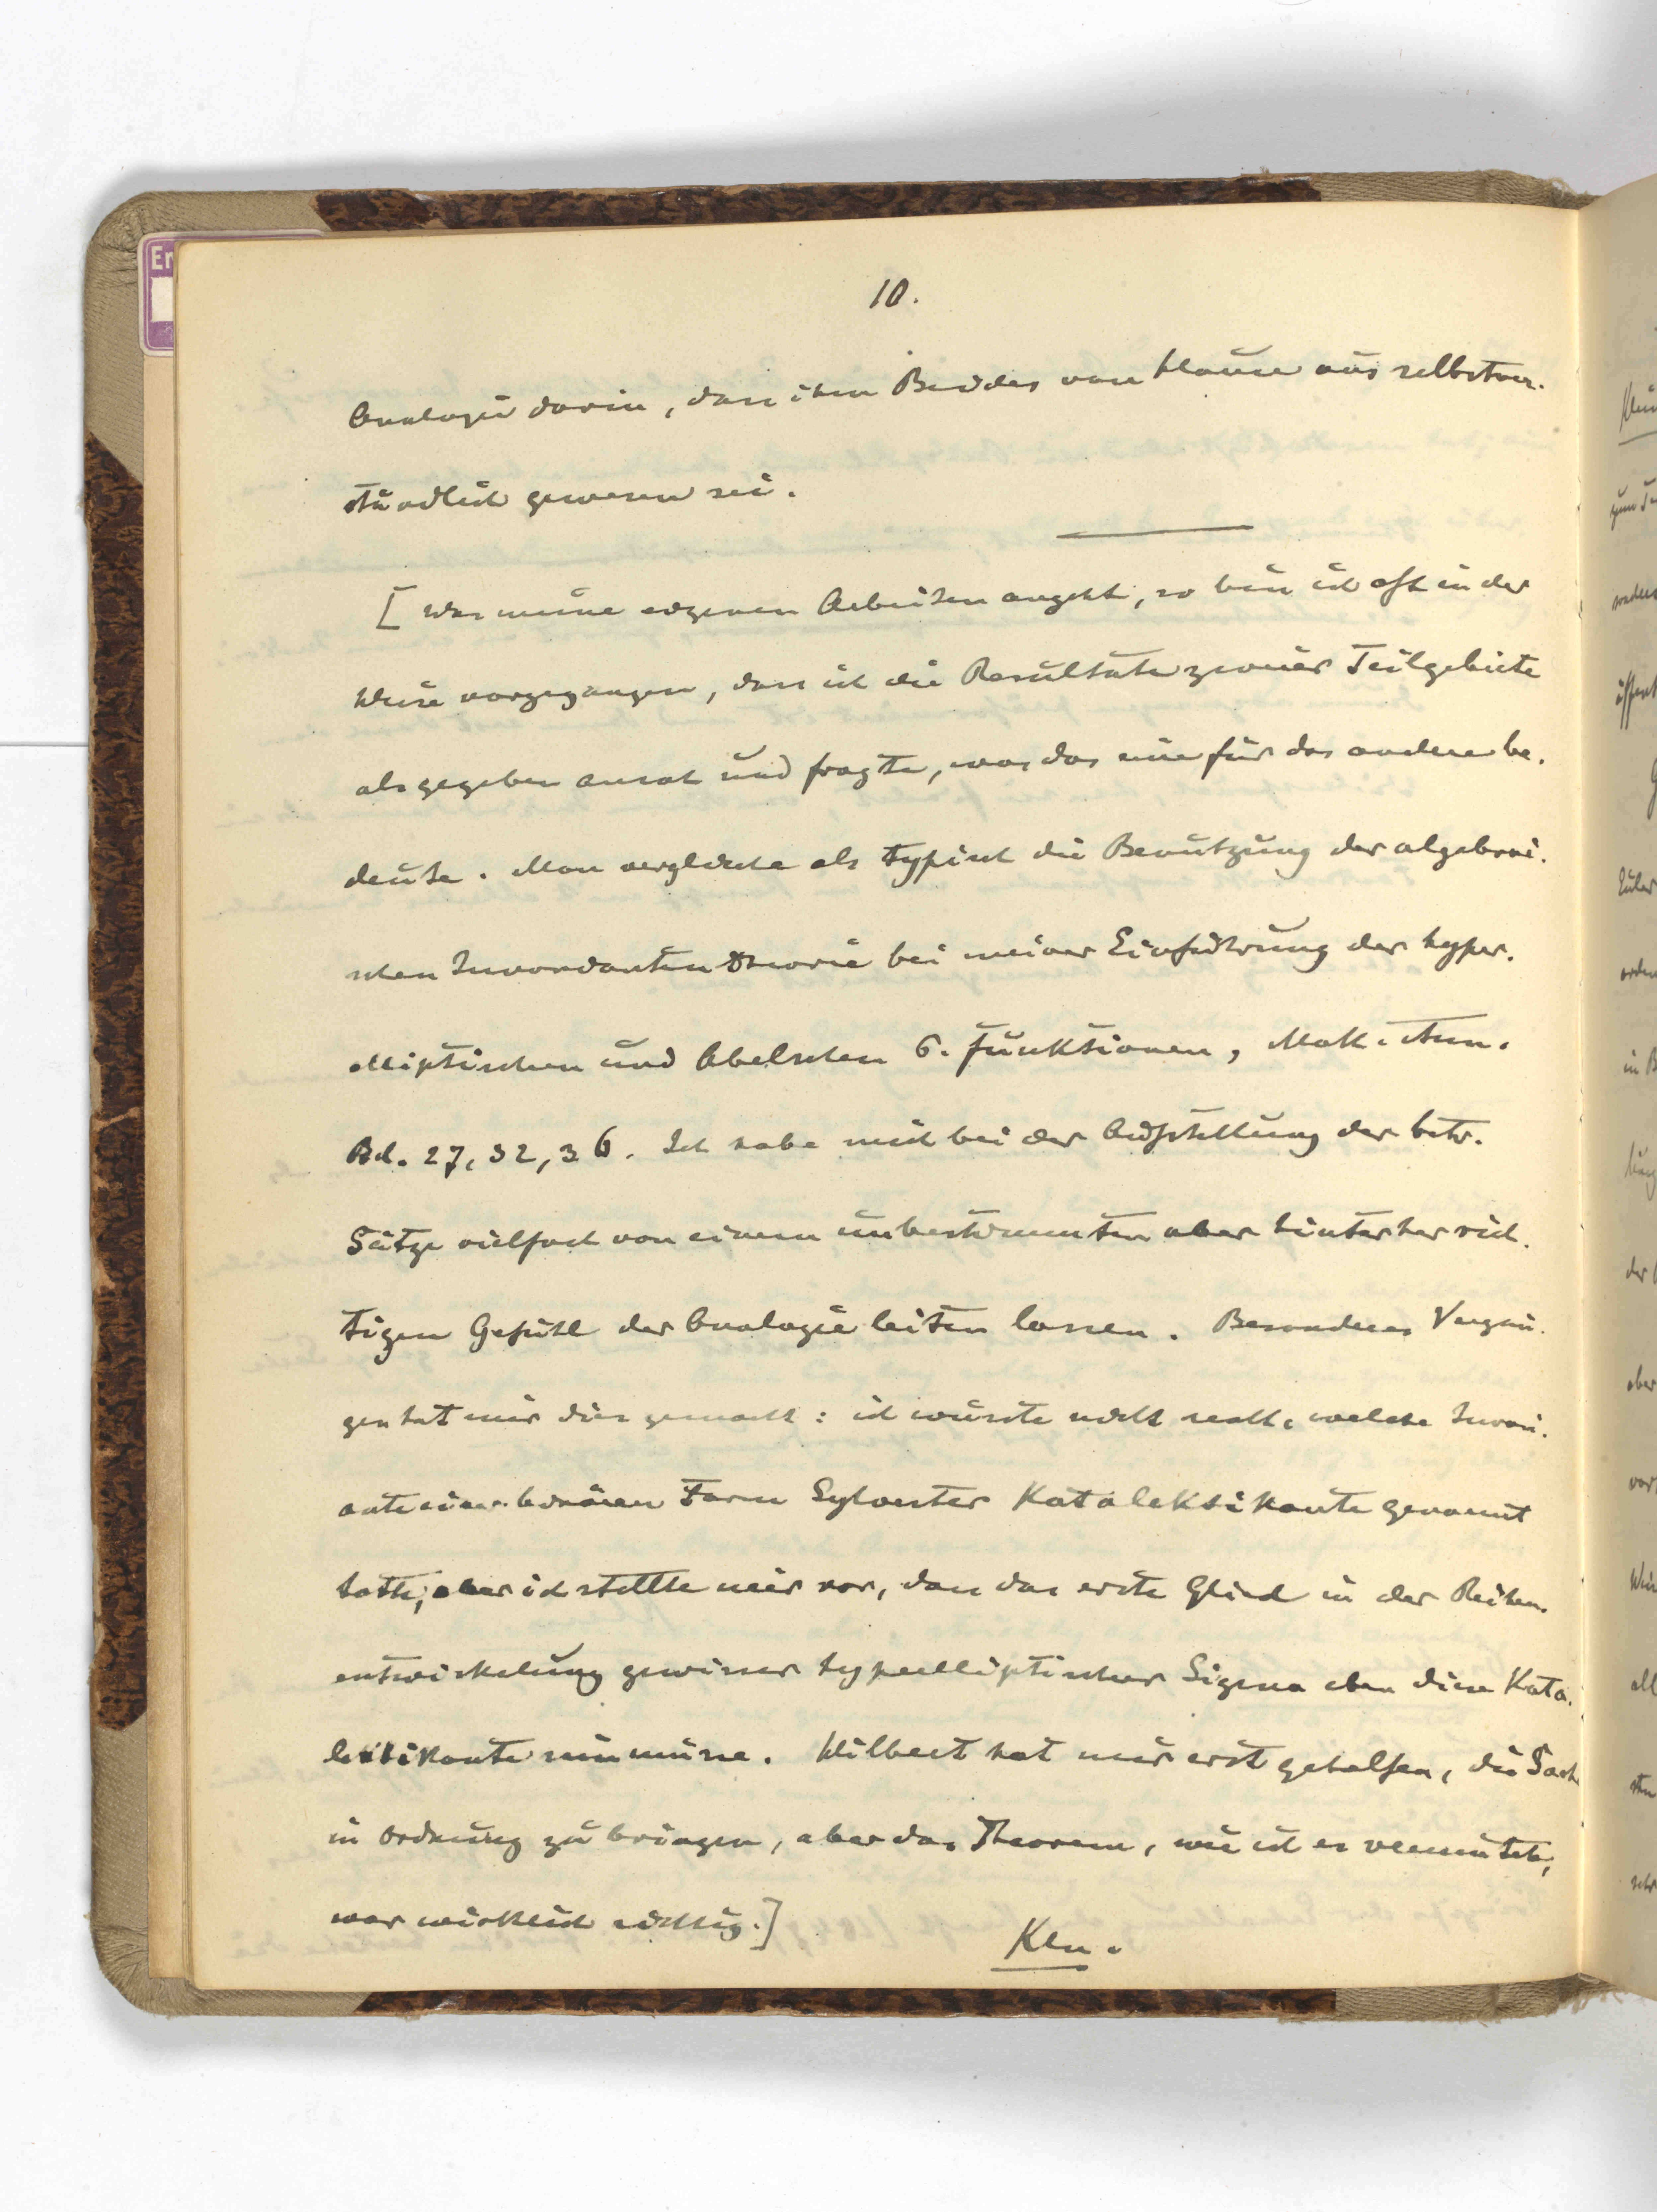 10.
Analogie darin, dass ihm Beides von Hause aus selbstver-
ständlich gewesen sei.
[Was meine eigenen Arbeiten angeht, so bin ich oft in der
Weise vorgegangen, dass ich die Resultate zweier Teilgebiete
als gegeben ansah und fragte, was das eine für das andere be-
deute. Man vergleiche als typisch die Benutzung der algebrai-
schen Invariantentheorie bei meiner Einführung der hyper-
elliptischen und Abelschen σ-funktionen, Math. Ann.
Bd. 27, 32, 36. Ich habe mich bei der Aufstellung der betr.
Sätze vielfach von einem unbestimmten aber hinterher rich-
tigen Gefühl der Analogie leiten lassen. Besonderes Vergnü-
gen hat mir dies gemacht: ich wusste nicht recht, welche Invari-
ante einer binären Form Sylvester Katalektikante genannt
hatte, aber ich stellte mir vor, dass das erste Glied in der Reihen-
entwickelung gewisser hyperelliptischer Sigma eben diese Kata-
lektikante sein müsse. Hilbert hat mir erst geholfen, die Sache
in Ordnung zu bringen, aber das Theorem, wie ich es vermutete,
war wirklich richtig.]
Kln.
Er